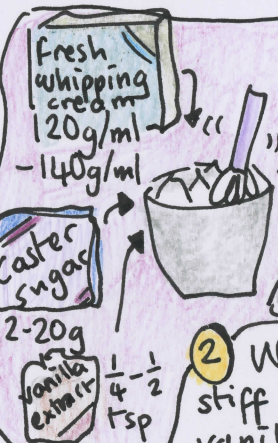 Fresh
whipping
cream
120g/ml
-140g/ml
Caster
sugar
2-20g
vanilla
extract
1/4 - 1/2
tsp
2
stiff